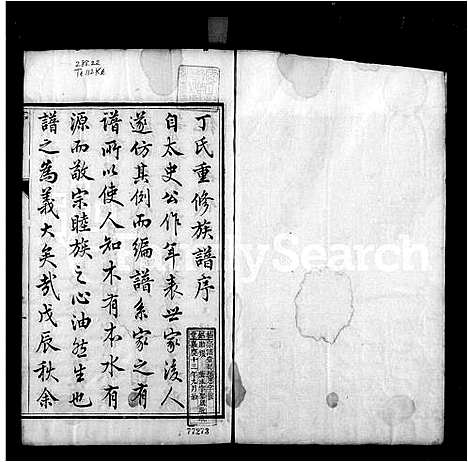 丁氏重修族譜序
自太史公作年表世家後人
遂仿其例而編譜系家之有
譜所以使人知木有本水有
源而敬宗睦族之心油然生也
譜之為義大矣哉戊辰秋余
288.22
77273
FamilySearch